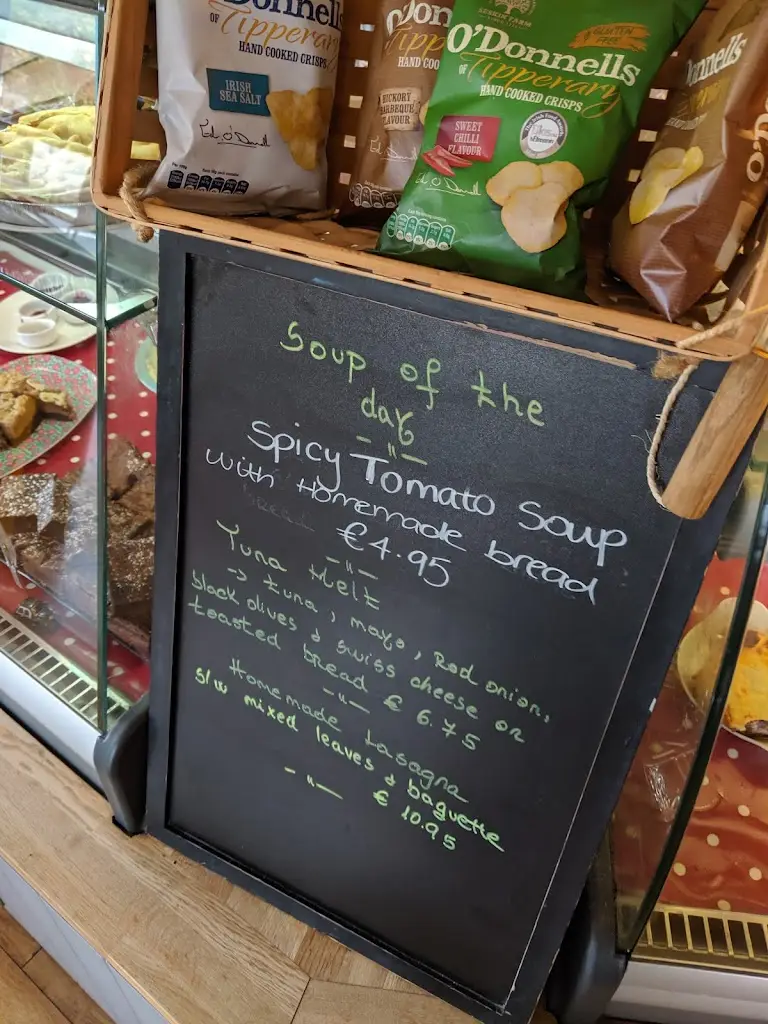 O'Donnells
OF Tipperary
HAND COOKED CRISPS
IRISH
SEA SALT
Tipp
HAND COO
HICKORY
BARBEQUE
FLAVOUR
O'Donnells
OF Tipperary
HAND COOKED CRISPS
GLUTEN
FREE
SWEET
CHILLI
FLAVOUR
Soup of the
day
Spicy Tomato Soup
with Homemade bread
€4.95
Tuna Melt
→ tuna, mayo, Red onion,
black olives & swiss cheese on
toasted bread € 6.75
Homemade Lasagna
s/w mixed leaves & baguette
€ 10.95